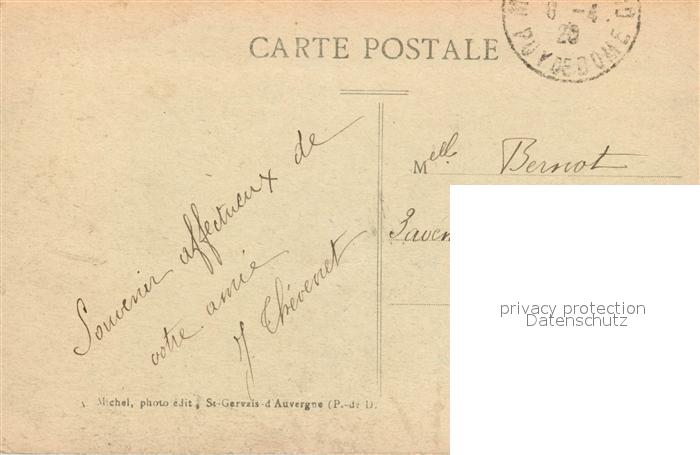 CARTE POSTALE
6 -4
29
PUY DE DOME
Souvenir affectueux de
votre amie
J Thévenet
Mell Bernot
3 aven
privacy protection
Datenschutz
Michel, photo édit, St-Gervais-d'Auvergne (P.-de D.